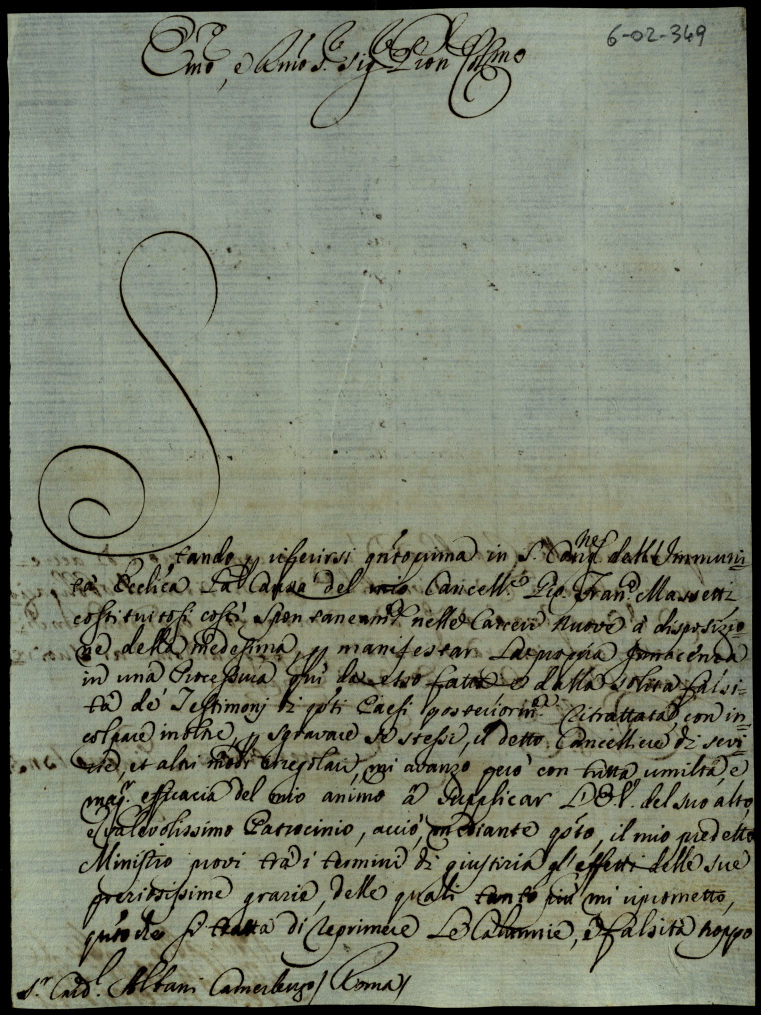 6-02-349
Emo, e Rmo Sr. Sig. Pron Colmo
Stando p riferirsi qntoprima in S. Congne dell'Immuni=
tà Ecclica La Causa del mio Cancelle Pip. Franc Massetti
costituitosi costì spontaneamte nelle Carceri nuove à disposizio=
ne della medesima, p manifestar La propria Innocenza
in una Processura quì da esso fatta e dalla solita falsi=
tà de' Testimonj di qsti Paesi posteriormte ritrattata con in=
colpare inoltre, p sgravare se stessi, il detto Cancelliere di sevi=
zie, et altri modi irregolari, mi avanzo però con tutta umiltà, e
magr efficacia del mio animo à supplicar L'E.V. del suo alto,
e valevolissimo Patrocinio, acciò, mediante qsto, il mio predetto
Ministro provi trà i termini di giustizia gl'effetti delle sue
preziosissime grazie, delle quali tanto più mi riprometto,
qnto che si tratta di reprimere Le Calunnie, e falsità troppo
Sr. Cardl. Albani Camerlengo / Roma /